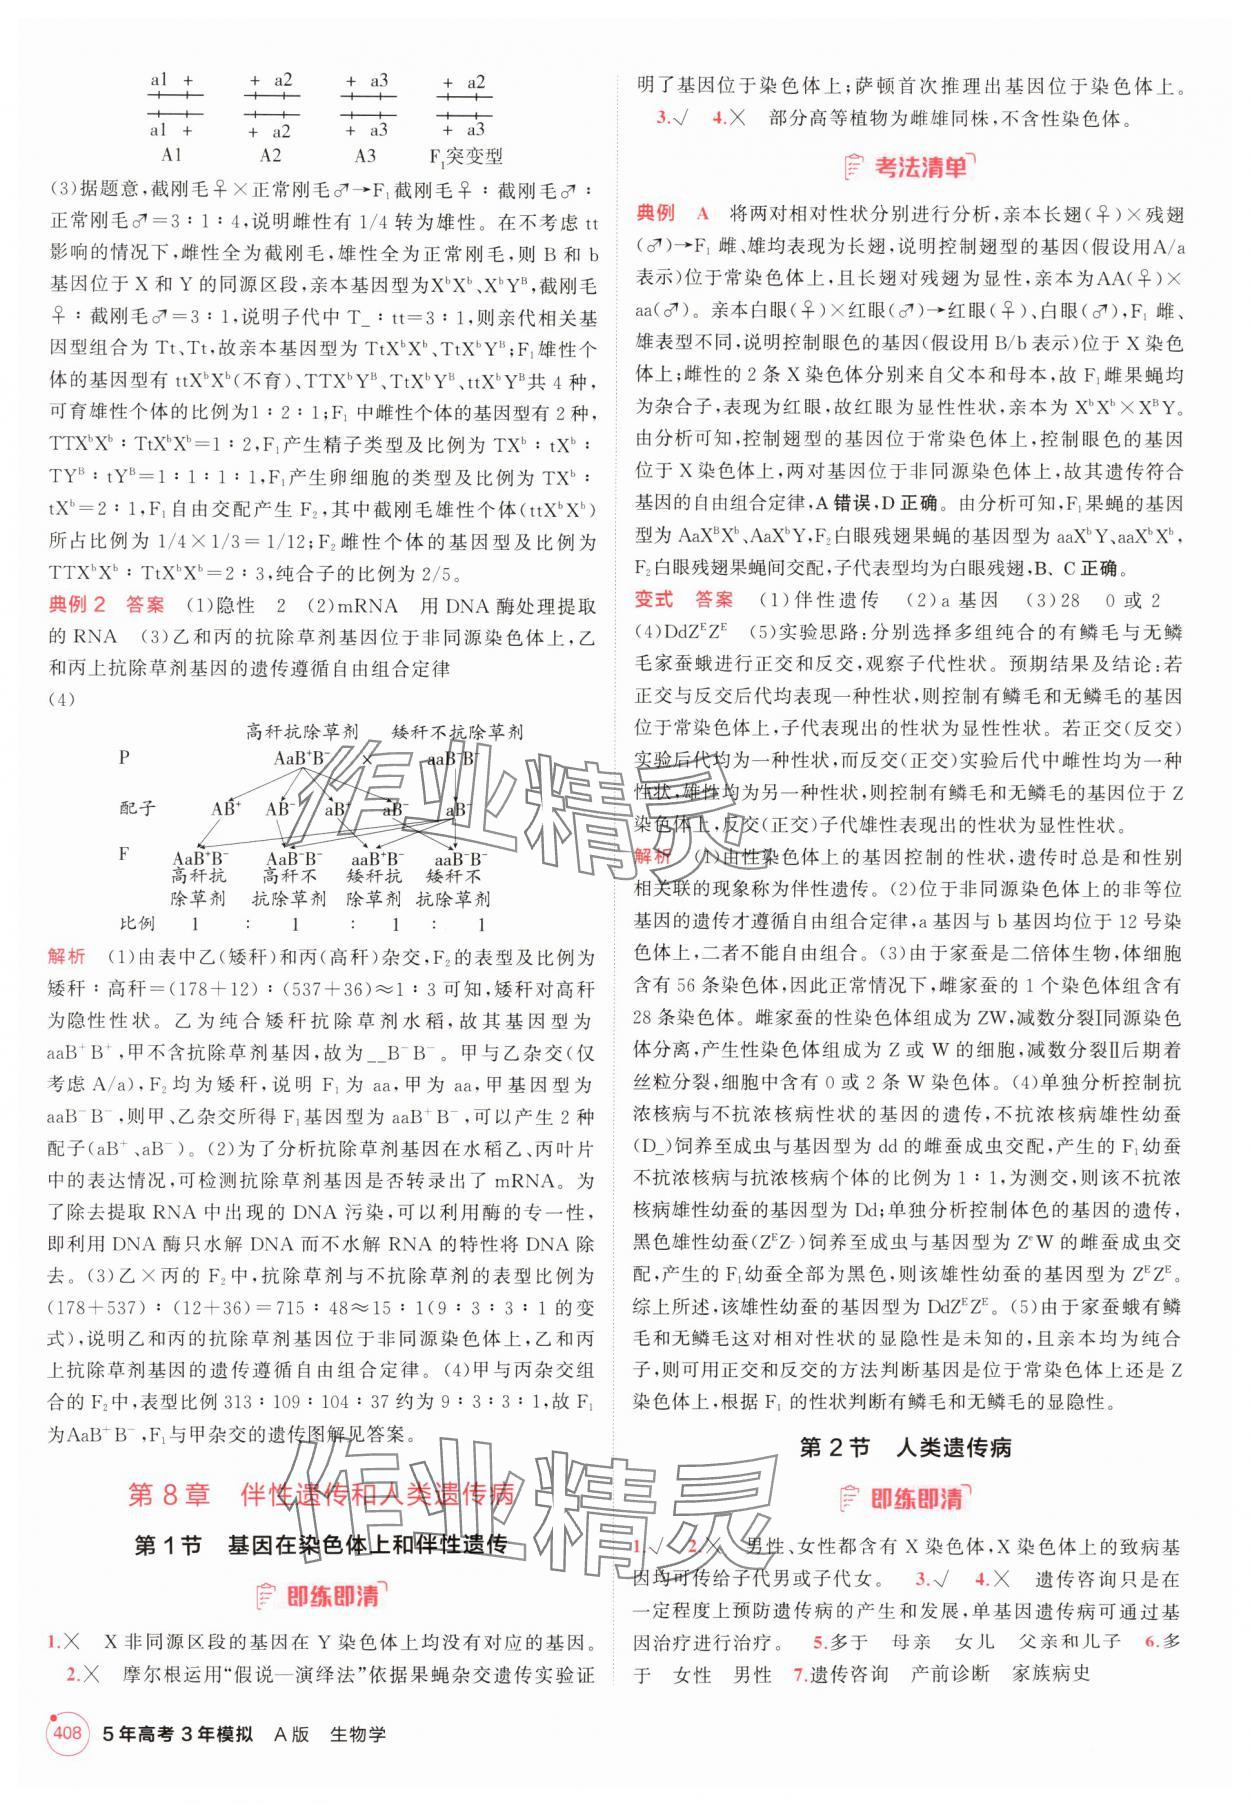 a1 + + a2 + a3 + a2
a1 + + a2 + a3 + a3
A1 A2 A3 F₁突变型
(3)据题意,截刚毛♀×正常刚毛♂→F₁截刚毛♀∶截刚毛♂∶
正常刚毛♂=3∶1∶4,说明雌性有1/4转为雄性。在不考虑tt
影响的情况下,雌性全为截刚毛,雄性全为正常刚毛,则B和b
基因位于X和Y的同源区段,亲本基因型为XᵇXᵇ、XᵇYᴮ,截刚毛
♀∶截刚毛♂=3∶1,说明子代中T_∶tt=3∶1,则亲代相关基
因型组合为Tt、Tt,故亲本基因型为TtXᵇXᵇ、TtXᵇYᴮ;F₁雄性个
体的基因型有ttXᵇXᵇ(不育)、TTXᵇYᴮ、TtXᵇYᴮ、ttXᵇYᴮ共4种,
可育雄性个体的比例为1∶2∶1;F₁中雌性个体的基因型有2种,
TTXᵇXᵇ∶TtXᵇXᵇ=1∶2,F₁产生精子类型及比例为TXᵇ∶tXᵇ∶
TYᴮ∶tYᴮ=1∶1∶1∶1,F₁产生卵细胞的类型及比例为TXᵇ∶
tXᵇ=2∶1,F₁自由交配产生F₂,其中截刚毛雄性个体(ttXᵇXᵇ)
所占比例为1/4×1/3=1/12;F₂雌性个体的基因型及比例为
TTXᵇXᵇ∶TtXᵇXᵇ=2∶3,纯合子的比例为2/5。
典例2 答案 (1)隐性 2 (2)mRNA 用DNA酶处理提取
的RNA (3)乙和丙的抗除草剂基因位于非同源染色体上,乙
和丙上抗除草剂基因的遗传遵循自由组合定律
(4)
高秆抗除草剂 矮秆不抗除草剂
P AaB⁺B⁻ × aaB⁻B⁻
配子 AB⁺ AB⁻ aB⁺ aB⁻ aB⁻
F AaB⁺B⁻ AaB⁻B⁻ aaB⁺B⁻ aaB⁻B⁻
高秆抗 高秆不 矮秆抗 矮秆不
除草剂 抗除草剂 除草剂 抗除草剂
比例 1 ∶ 1 ∶ 1 ∶ 1
解析 (1)由表中乙(矮秆)和丙(高秆)杂交,F₂的表型及比例为
矮秆∶高秆=(178+12)∶(537+36)≈1∶3可知,矮秆对高秆
为隐性性状。乙为纯合矮秆抗除草剂水稻,故其基因型为
aaB⁺B⁺,甲不含抗除草剂基因,故为__B⁻B⁻。甲与乙杂交(仅
考虑A/a),F₂均为矮秆,说明F₁为aa,甲为aa,甲基因型为
aaB⁻B⁻,则甲、乙杂交所得F₁基因型为aaB⁺B⁻,可以产生2种
配子(aB⁺、aB⁻)。(2)为了分析抗除草剂基因在水稻乙、丙叶片
中的表达情况,可检测抗除草剂基因是否转录出了mRNA。为
了除去提取RNA中出现的DNA污染,可以利用酶的专一性,
即利用DNA酶只水解DNA而不水解RNA的特性将DNA除
去。(3)乙×丙的F₂中,抗除草剂与不抗除草剂的表型比例为
(178+537)∶(12+36)=715∶48≈15∶1(9∶3∶3∶1的变
式),说明乙和丙的抗除草剂基因位于非同源染色体上,乙和丙
上抗除草剂基因的遗传遵循自由组合定律。(4)甲与丙杂交组
合的F₂中,表型比例313∶109∶104∶37约为9∶3∶3∶1,故F₁
为AaB⁺B⁻,F₁与甲杂交的遗传图解见答案。
第8章 伴性遗传和人类遗传病
第1节 基因在染色体上和伴性遗传
即练即清
1.× X非同源区段的基因在Y染色体上均没有对应的基因。
2.× 摩尔根运用“假说—演绎法”依据果蝇杂交遗传实验证
明了基因位于染色体上;萨顿首次推理出基因位于染色体上。
3.√ 4.× 部分高等植物为雌雄同株,不含性染色体。
考法清单
典例 A 将两对相对性状分别进行分析,亲本长翅(♀)×残翅
(♂)→F₁雌、雄均表现为长翅,说明控制翅型的基因(假设用A/a
表示)位于常染色体上,且长翅对残翅为显性,亲本为AA(♀)×
aa(♂)。亲本白眼(♀)×红眼(♂)→红眼(♀)、白眼(♂),F₁雌、
雄表型不同,说明控制眼色的基因(假设用B/b表示)位于X染色
体上;雌性的2条X染色体分别来自父本和母本,故F₁雌果蝇均
为杂合子,表现为红眼,故红眼为显性性状,亲本为XᵇXᵇ×XᴮY。
由分析可知,控制翅型的基因位于常染色体上,控制眼色的基因
位于X染色体上,两对基因位于非同源染色体上,故其遗传符合
基因的自由组合定律,A错误,D正确。由分析可知,F₁果蝇的基因
型为AaXᴮXᵇ、AaXᵇY,F₂白眼残翅果蝇的基因型为aaXᵇY、aaXᵇXᵇ,
F₂白眼残翅果蝇间交配,子代表型均为白眼残翅,B、C正确。
变式 答案 (1)伴性遗传 (2)a基因 (3)28 0或2
(4)DdZᴱZᴱ (5)实验思路:分别选择多组纯合的有鳞毛与无鳞
毛家蚕蛾进行正交和反交,观察子代性状。预期结果及结论:若
正交与反交后代均表现一种性状,则控制有鳞毛和无鳞毛的基因
位于常染色体上,子代表现出的性状为显性性状。若正交(反交)
实验后代均为一种性状,而反交(正交)实验后代中雌性均为一种
性状,雄性均为另一种性状,则控制有鳞毛和无鳞毛的基因位于Z
染色体上,反交(正交)子代雄性表现出的性状为显性性状。
解析 (1)由性染色体上的基因控制的性状,遗传时总是和性别
相关联的现象称为伴性遗传。(2)位于非同源染色体上的非等位
基因的遗传才遵循自由组合定律,a基因与b基因均位于12号染
色体上,二者不能自由组合。(3)由于家蚕是二倍体生物,体细胞
含有56条染色体,因此正常情况下,雌家蚕的1个染色体组含有
28条染色体。雌家蚕的性染色体组成为ZW,减数分裂Ⅰ同源染色
体分离,产生性染色体组成为Z或W的细胞,减数分裂Ⅱ后期着
丝粒分裂,细胞中含有0或2条W染色体。(4)单独分析控制抗
浓核病与不抗浓核病性状的基因的遗传,不抗浓核病雄性幼蚕
(D_)饲养至成虫与基因型为dd的雌蚕成虫交配,产生的F₁幼蚕
不抗浓核病与抗浓核病个体的比例为1∶1,为测交,则该不抗浓
浓核病雄性幼蚕的基因型为Dd;单独分析控制体色的基因的遗传,
黑色雄性幼蚕(ZᴱZ⁻)饲养至成虫与基因型为ZᵉW的雌蚕成虫交
配,产生的F₁幼蚕全部为黑色,则该雄性幼蚕的基因型为ZᴱZᴱ。
综上所述,该雄性幼蚕的基因型为DdZᴱZᴱ。(5)由于家蚕蛾有鳞
毛和无鳞毛这对相对性状的显隐性是未知的,且亲本均为纯合
子,则可用正交和反交的方法判断基因是位于常染色体上还是Z
染色体上,根据F₁的性状判断有鳞毛和无鳞毛的显隐性。
第2节 人类遗传病
即练即清
1.√ 2.× 男性、女性都含有X染色体,X染色体上的致病基
因均可传给子代男或子代女。 3.√ 4.× 遗传咨询只是在
一定程度上预防遗传病的产生和发展,单基因遗传病可通过基
因治疗进行治疗。 5.多于 母亲 女儿 父亲和儿子 6.多
于 女性 男性 7.遗传咨询 产前诊断 家族病史
408 5年高考3年模拟 A版 生物学
作业精灵
作业精灵